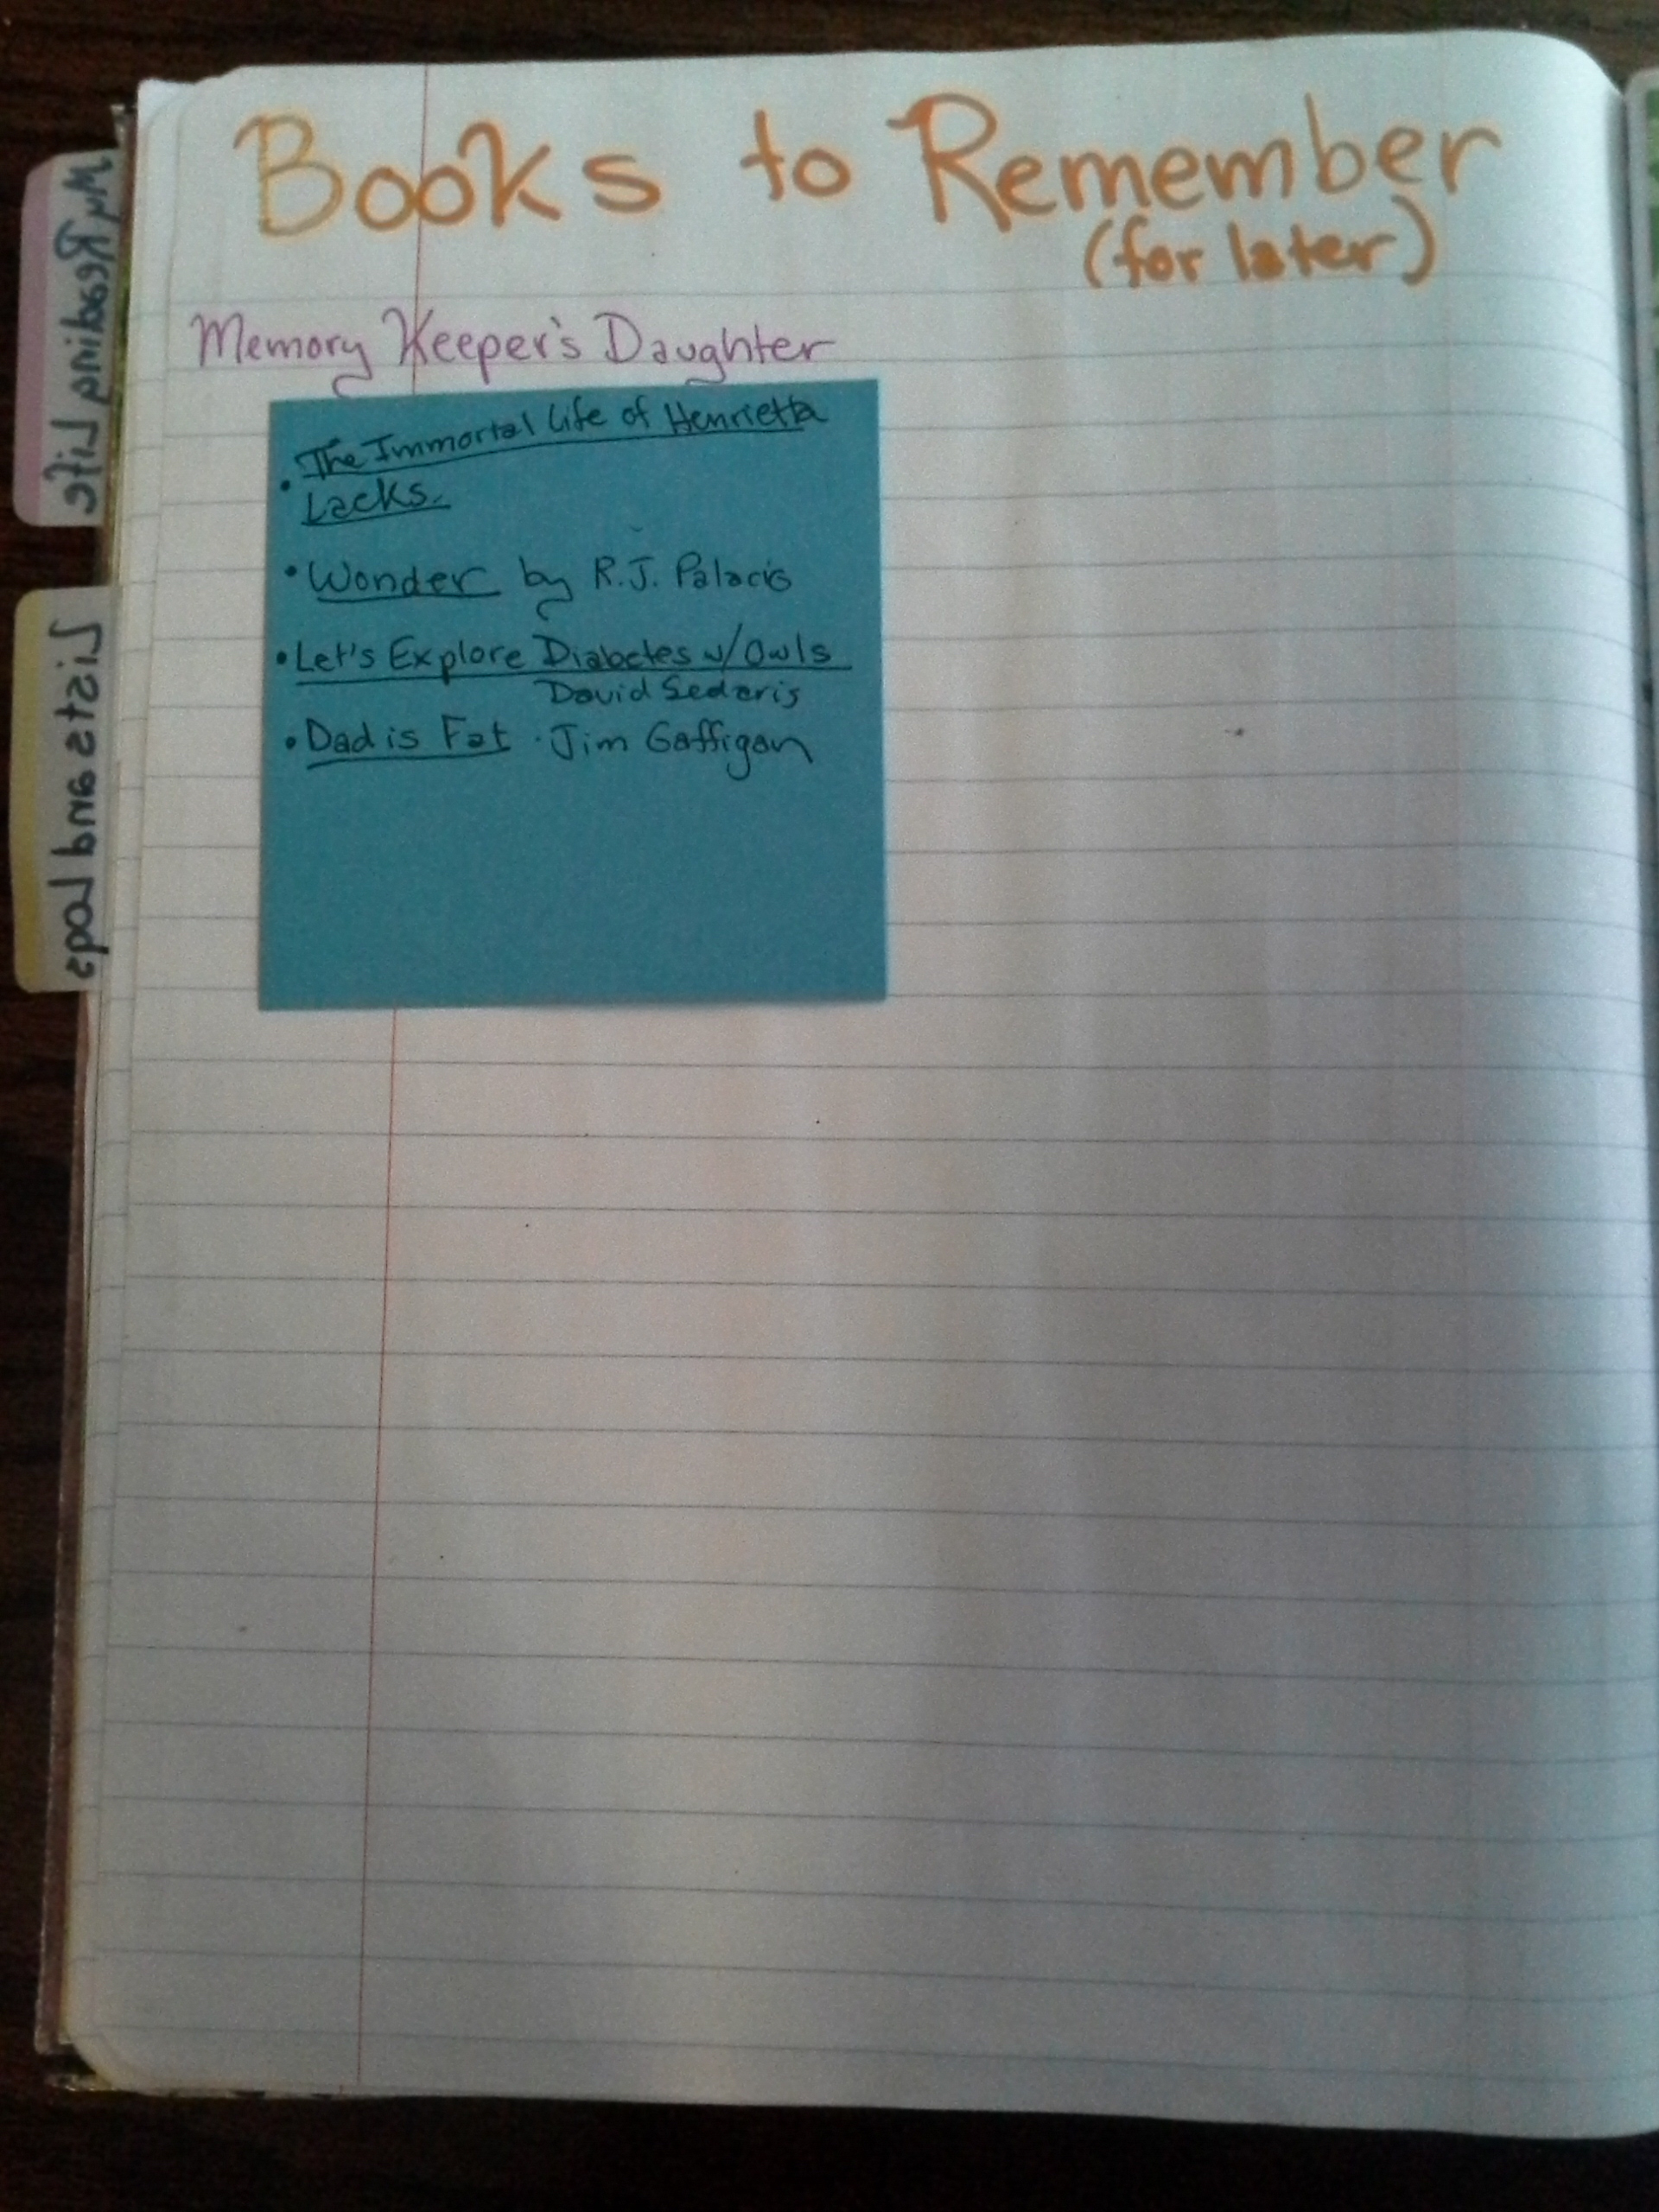 Books to Remember
(for later)
Memory Keeper's Daughter
• The Immortal Life of Henrietta
Lacks.
• Wonder by R.J. Palacio
• Let's Explore Diabetes w/Owls
David Sedaris
• Dad is Fat · Jim Gaffigan
My Reading Life
Lists and Logs